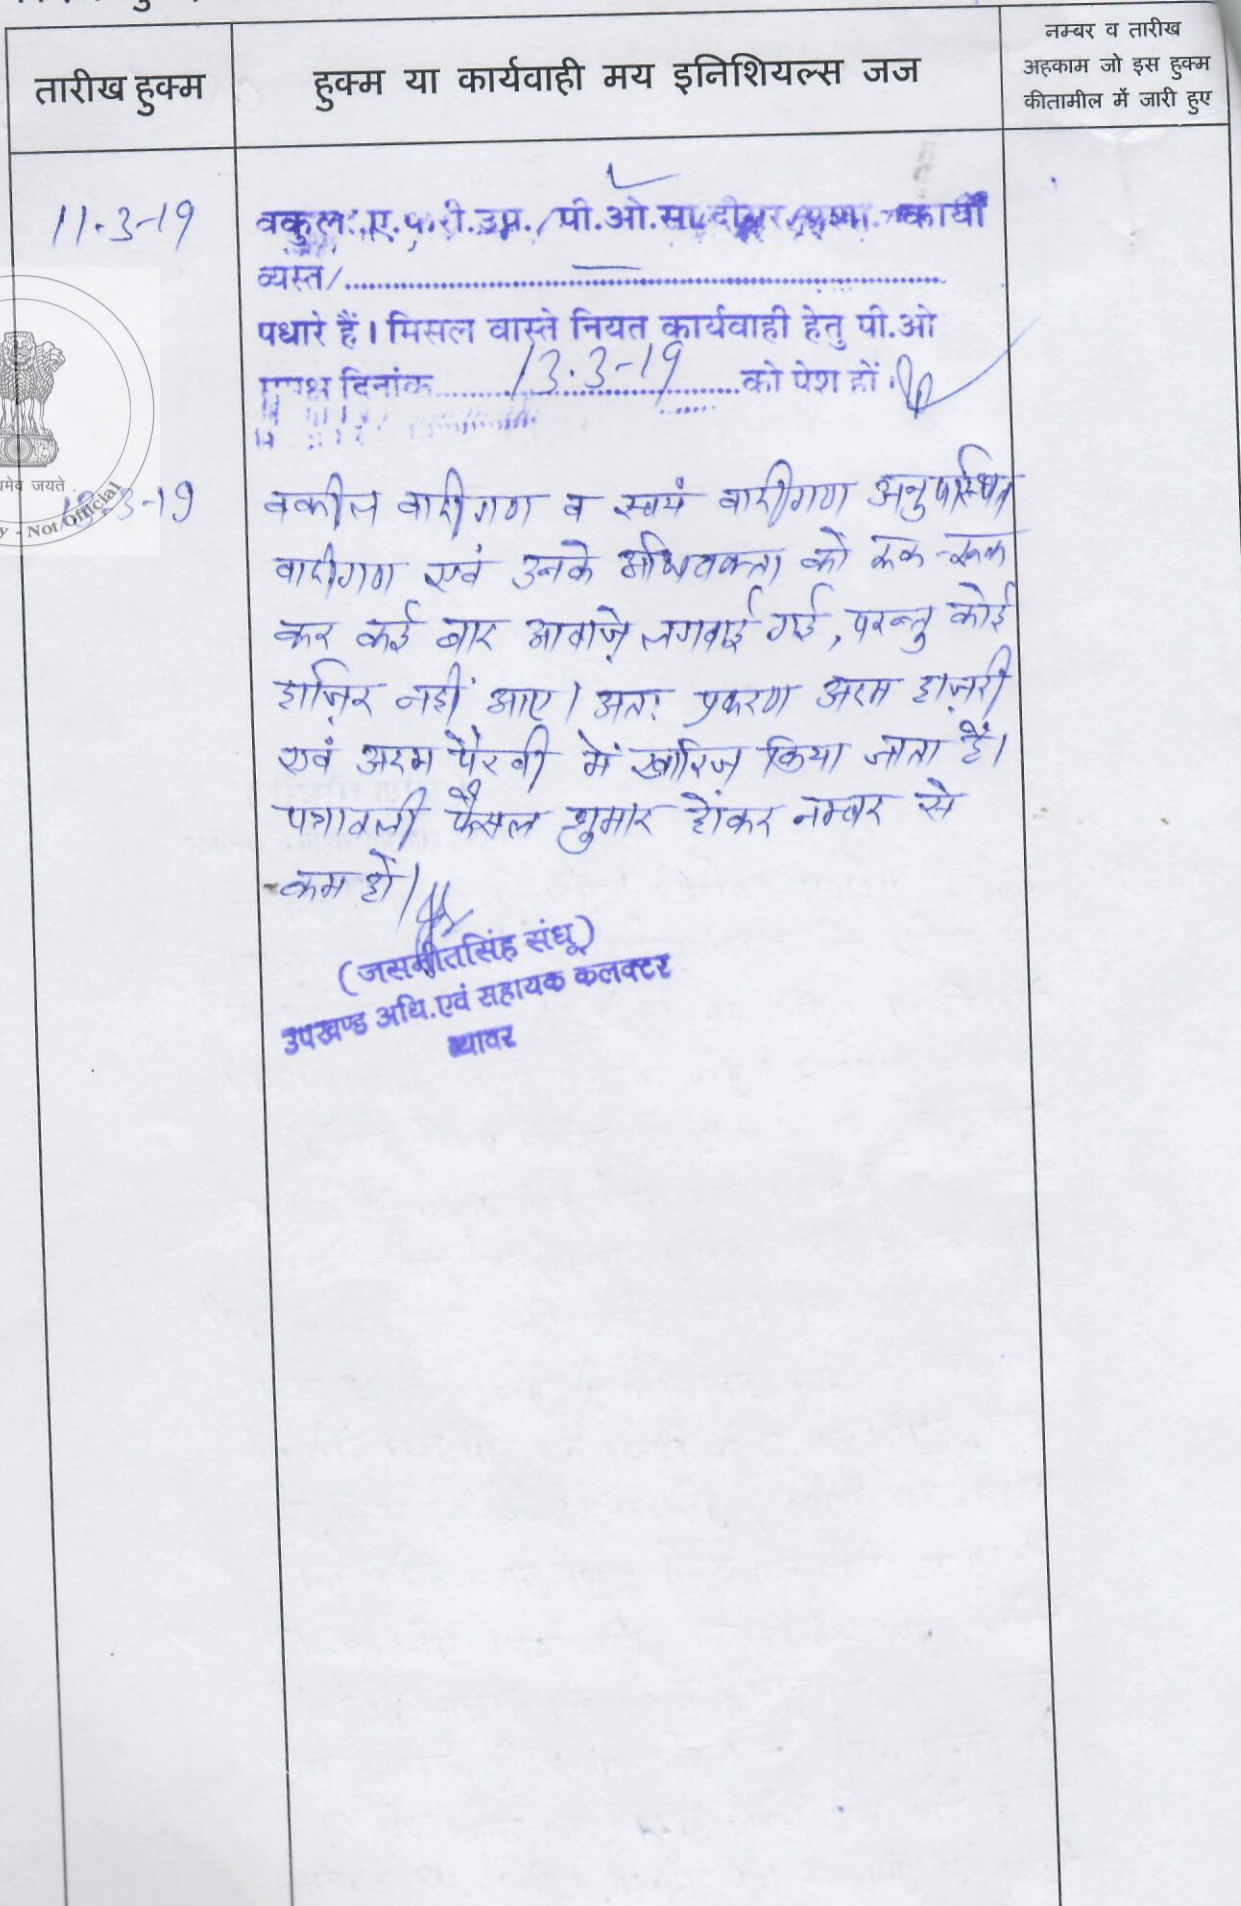 तारीख हुक्म
हुक्म या कार्यवाही मय इनिशियल्स जज
नम्बर व तारीख
अहकाम जो इस हुक्म
कीतामील में जारी हुए
11-3-19
वकुल ए.प.री.उप./पी.ओ.सा. कार्यो
व्यस्त/
पधारे हैं। मिसल वास्ते नियत कार्यवाही हेतु पी.ओ
समक्ष दिनांक 13.3-19 को पेश हों।
मेव जयते
Not Official
13-3-19
वकील वादीगण व स्वयं वादीगण अनुपस्थित
वादीगण एवं उनके अधिवक्ता को रूक-रूक
कर कई बार आवाज़े लगवाई गई, परन्तु कोई
हाज़िर नहीं आए। अतः प्रकरण अदम हाज़री
एवं अदम पैरवी में खारिज किया जाता है।
पत्रावली फैसल शुमार होकर नम्बर से
कम हो।
(जसमीतसिंह संधू)
उपखण्ड अधि.एवं सहायक कलक्टर
ब्यावर